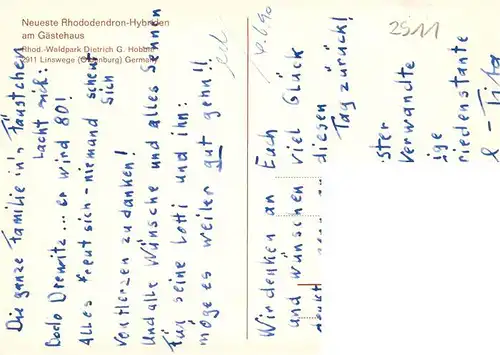 Neueste Rhododendron-Hybriden
am Gästehaus
Rhod.-Waldpark Dietrich G. Hobbie
2911 Linswege (Oldenburg) Germany
2911
Die ganze Familie in's Fäustchen
lacht sich:
Bodo Drewitz... er wird 80!
Alles freut sich - niemand scheut
sich
von Herzen zu danken!
Und alle Wünsche und alles Sehnen
für seine Lotti und ihn:
möge es weiter gut gehn!!
Wir denken an Euch
und wünschen viel Glück
diesen
Tag zurück!
ster
Verwandte
ige
riedenstante